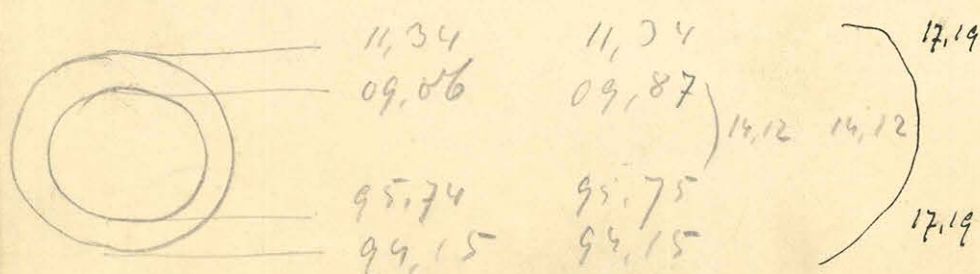 11,34 11,34 17,19
09,86 09,87
14,12 14,12
95,74 95,75
17,19
94,15 94,15